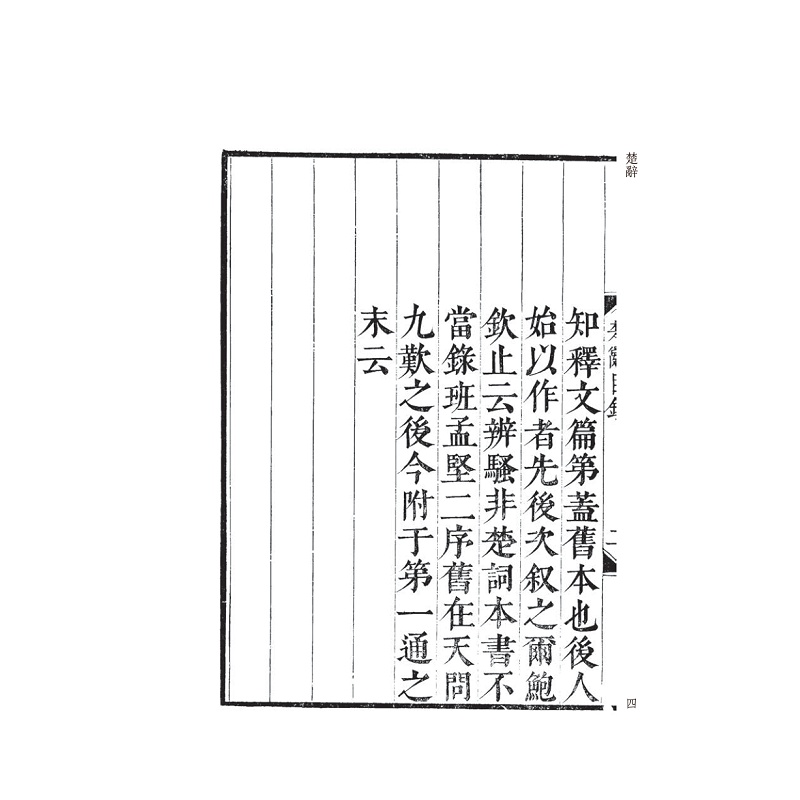 楚辭
知釋文篇第蓋舊本也後人
始以作者先後次叙之爾鮑
欽止云辨騷非楚詞本書不
當錄班孟堅二序舊在天問
九歎之後今附于第一通之
末云
四